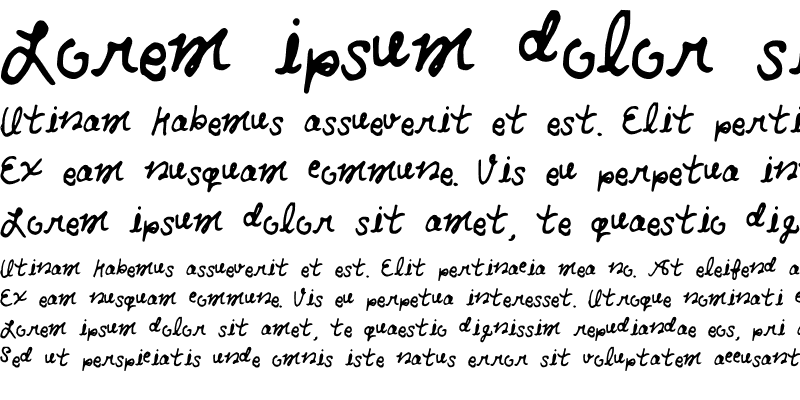 Lorem ipsum dolor si
Utinam habemus assueverit et est. Elit perti
Ex eam nusquam commune. Vis eu perpetua in
Lorem ipsum dolor sit amet, te quaestio dig
Utinam habemus assueverit et est. Elit pertinacia mea no. At eleifend a
Ex eam nusquam commune. Vis eu perpetua interesset. Utroque nominati e
Lorem ipsum dolor sit amet, te quaestio dignissim repudiandae eos, pri
Sed ut perspiciatis unde omnis iste natus error sit voluptatem accusant